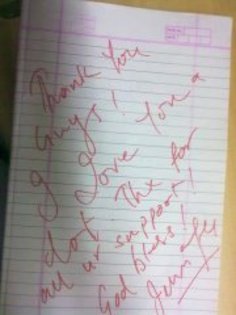 Thank you
guys!
I Love you a
lot. Thx for
all ur support!
God bless!